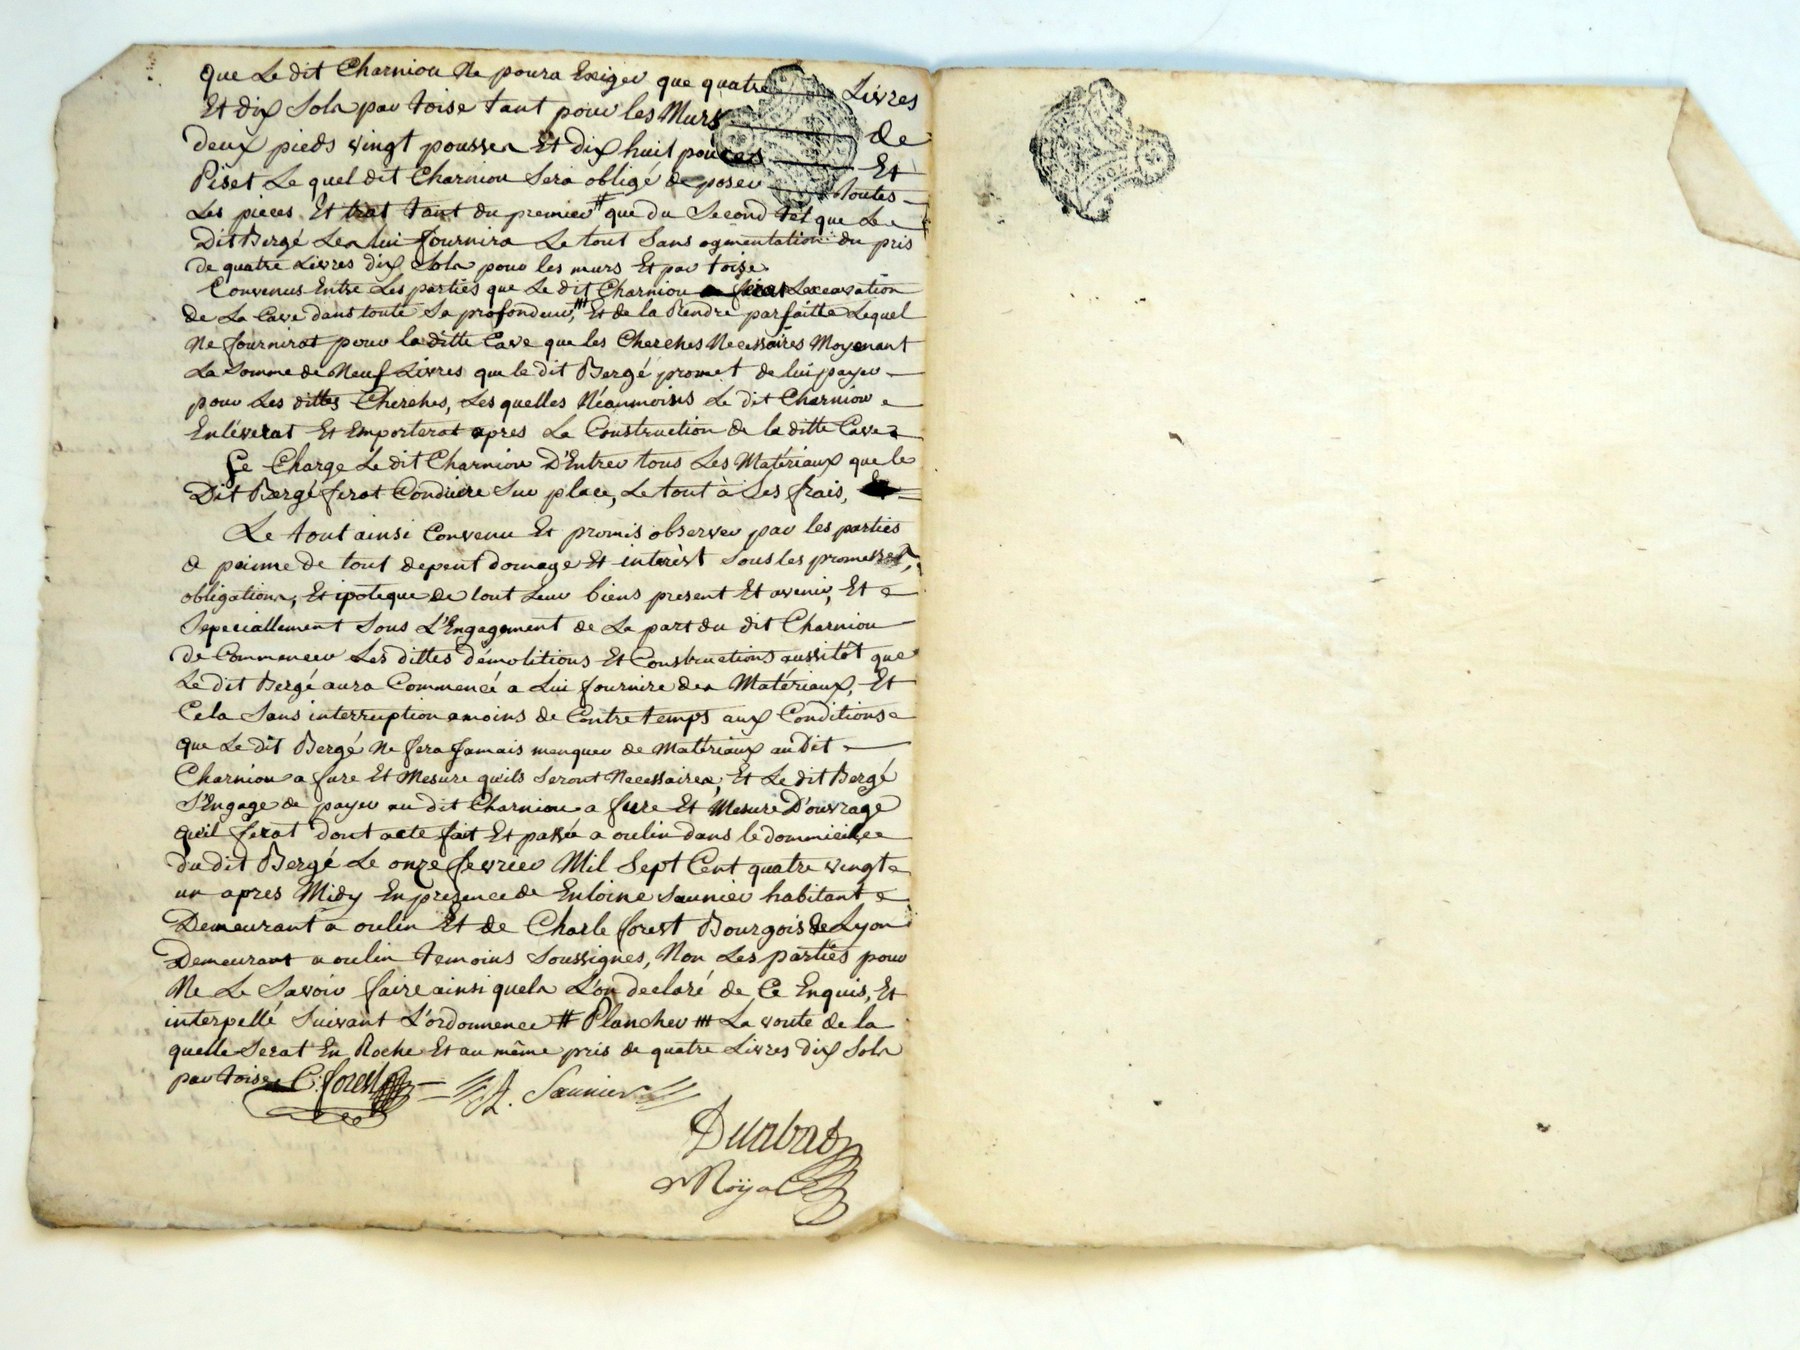 que Le dit Charniou Ne poura Exiger que quatre Livres
Et dix Sols par toise tant pour les Murs de
deux pieds vingt pousses Et dix huit pouces Et
Piset Le quel dit Charniou Sera obligé de poser toutes
Les pieces Et tant du premier # que du Second tel que Le
Dit Bergé Les lui fournira Le tout Sans ogmentation du pris
de quatre Livres dix Sols pour les murs Et par toise
Convenus Entre Les parties que Le dit Charniou feras Lexcavation
de La Cave dans toute Sa profondeur, ### Et de la Rendre parfaitte Lequel
Ne fournirat pour la ditte Cave que les Cherches Necessaires Moyenant
La Somme de Neuf Livres que le dit Bergé promet de lui payer
pour Les dittes Cherches, Les quelles Néanmoins Le dit Charniou
Enléverat Et Emporterat apres La Construction de la ditte Cave
Se Charge Le dit Charniou D'Entrer tous Les Matériaux que le
Dit Bergé ferat Conduire Sur place, Le tout à Ses frais,
Le tout ainsi Convenu Et promis observer par les parties
de peinne de tout depent domage Et interèst Sous les promesses,
obligations, Et ipoteque de tout Leur biens present Et avenir, Et
Sepeciallement Sous L'Engagement de La part du dit Charniou
de Commencer Les dittes démolitions Et Constructions aussitôt que
Le dit Bergé aura Commencé a Lui fournire des Matériaux, Et
Cela Sans interruption amoins de Contre temps aux Conditions
que Le dit Bergé Ne fera Jamais menquer de Matériaux au Dit
Charniou a fure Et Mesure qu'ils Seront Necessaires, Et Le dit Bergé
S'Engage de payer au dit Charniou a fure Et Mesure D'ouvrage
qu'il ferat dont acte fait Et passée a oulin dans le dommicile
du dit Bergé Le onze fevrier Mil Sept Cent quatre vingt
un apres Midy En presence de Entoine Saunier habitant
Demeurant a oulin Et de Charle forest Bourgois de Lyon
Demeurant a oulin temoins Soussignes, Non Les parties pour
Ne Le Savoir faire ainsi quels L'on declaré de Ce Enquis, Et
interpellé Suivant L'ordonnence # Plancher ### La voute de la
quelle Serat En Roche Et au même pris de quatre Livres dix Sols
par toise C. forest A. Saunier
Duabad
Royal